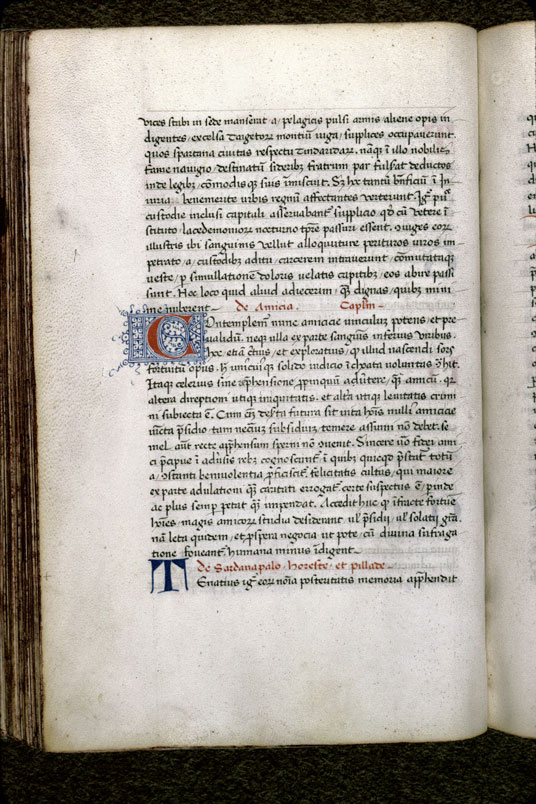 vices stabi in sede manserūt a / pelagicis pulsi armis aliene opis in
digentes / excelsa Taigetorz montiū iuga / supplices occupauerunt.
quos spartana ciuitas respectu Tindaridarz. nanqz ī illo nobilis
fame nauigio / destinatū sideribz fratrum par fulserat deductos
inde legibz / cōmodisqz suis īmiscuit. Sz hoc tantū bn̄ficiū ī In
iuria / benemerite urbis regnū affectantes verterunt. Igr̄ pu^ce
custodie inclusi capitali / asseruabant^r supplicio. qd̄ cū vetere ī
stituto / lacedemoniorz nocturno tpr̄e passuri essent. Cuiges eorz
illustris ibi sanguinis vellut alloquuture perituros viros im
petrato / a / custodibz aditu / carcerem intrauerunt / cōmutataqz
ueste / p simullatione doloris velatis capitibz / eos abire passe
sunt. Hoc loco quid aliud adiecerim / qz dignas / quibz mini
me nuberent. de Amicia. Caplm
COntemplem^r nunc amicicie uinculum potens / et pre
ualidū. neqz ulla ex parte sanguīs inferius viribus.
Hoc / etiā c̄tius / et exploratius / qz illud nascendi sors
fortuitū opus. h̄ uniuscuiqz solido iudicio īchoata voluntas 9hit.
Itaqz celerius sine rephensione / propinquū aduertere / qz amicū. qz
altera direptioni utiqz iniquitatis. et altera utiqz leuitatis crimi
ni subiecta ē. Cum em̄ deserta futura sit uita hoīs nulli^9 amicicie
cūcta p̄sidio. tam necc̄riū subsidiuz / temere assumi nō debet. se
mel aut̄ recte app̄hensum sperni nō 9uenit. Sincere uo fidei ami
ci p̄cipue ī aduersis rebz cognoscunt^r. ī quibz quicqd p̄stat^r totū
a / cōstanti beniuolentia p̄ficiscit^r. felicitatis cultus / qui maiore
ex parte adulationi qz caritati errogat^r. certe suspectus ē / pinde
ac plus semp petat qz impendat. Accedit huc qz īfracte fortune
hoīes / magis amicorz studia desiderant ul' p̄sidii / ul' solatii gr̄a
nā leta quidem / et p̄spera negocia ut pote / cū diuina suffraga
tione foueant^r. humana minus īdigent
de Sardanapalo / Horeste / et pillade
TEnatius igr̄ eorz noīa posteritatis memoria app̄hendit